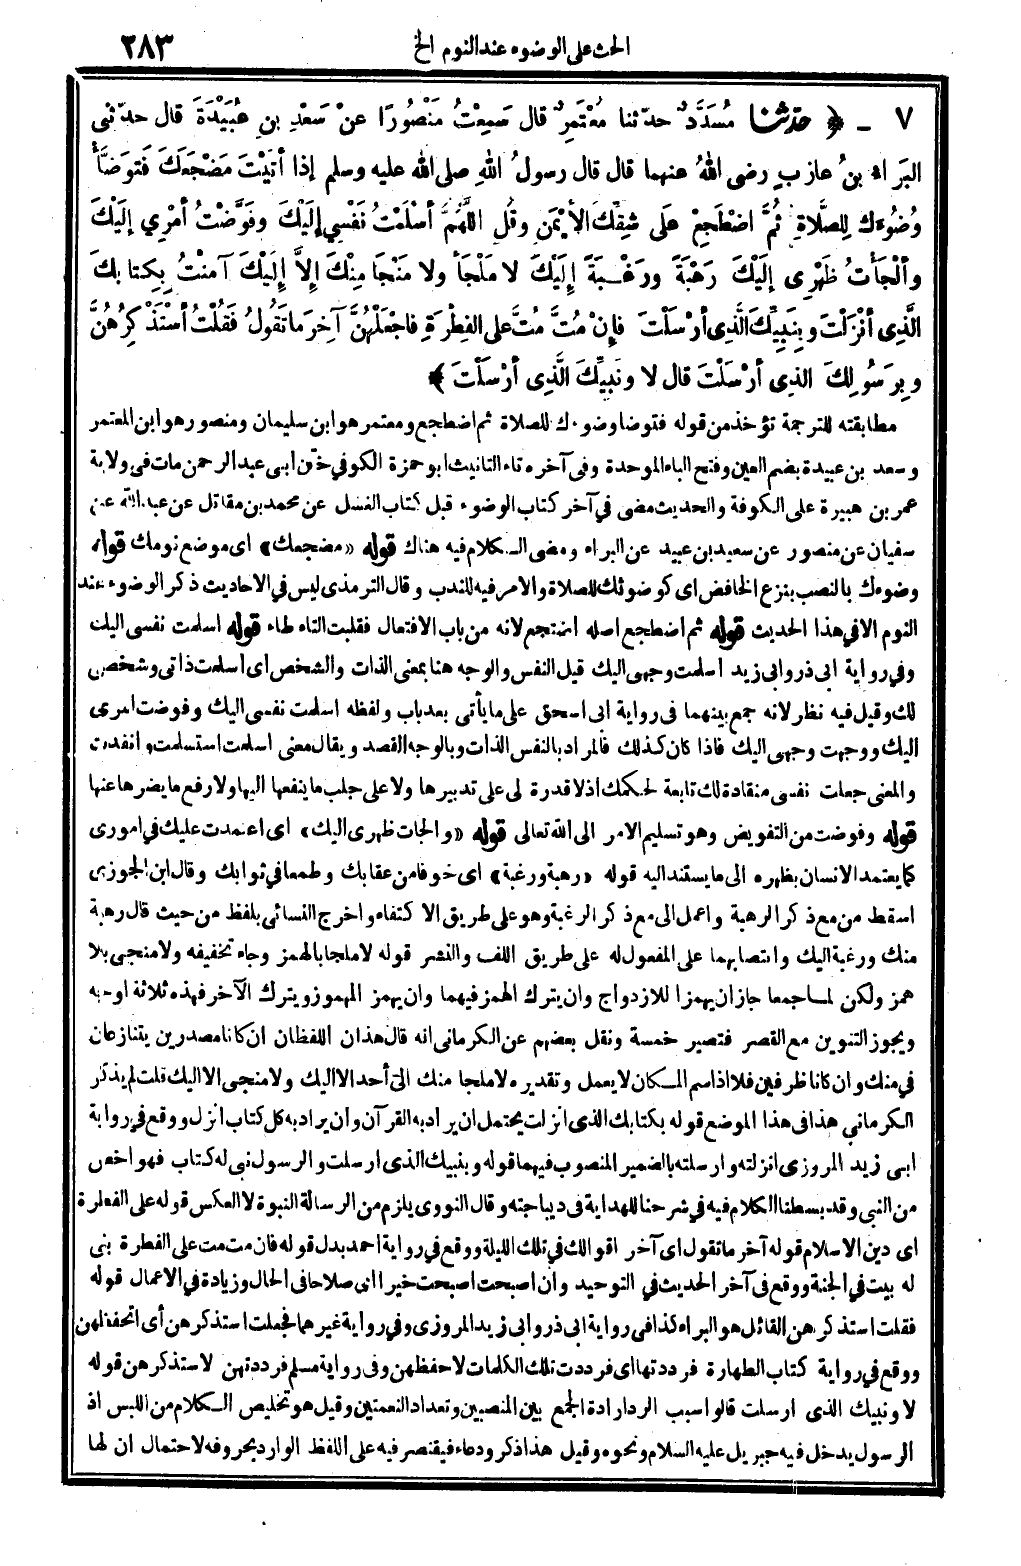 الحث على الوضوء عند النوم الخ ٢٨٣
٧ ـ ﴿ حدثنا مُسَدَّدٌ حدّثنا مُعْتَمِرٌ قال سَمِعْتُ مَنْصُورًا عنْ سَعْدِ بنِ عُبَيْدَةَ قال حدّثني
البَرَاءُ بنُ عازِبٍ رضى اللهُ عنهما قال قال رسولُ اللهِ صلى الله عليه وسلم إذا أتَيْتَ مَضْجَعَكَ فَتوَضَّأْ
وُضُوءَكَ لِلصَّلاةِ ثُمَّ اضْطَجِعْ عَلَى شِقِّكَ الأيْمَنِ وقُلِ اللَّهُمَّ أسْلَمْتُ نَفْسِي إلَيْكَ وفَوَّضْتُ أمْرِي إلَيْكَ
وألْجَأْتُ ظَهْرِى إلَيْكَ رَهْبَةً ورَغْبَةً إلَيْكَ لا مَلْجَأَ ولا مَنْجَا مِنْكَ إلاَّ إلَيْكَ آمَنْتُ بِكِتابِكَ
الَّذِى أنْزَلْتَ وبِنَبِيِّكَ الَّذِى أرْسَلْتَ فإنْ مُتَّ مُتَّ على الفِطْرَةِ فاجْعَلْهُنَّ آخِرَ ما تَقُولُ فَقُلْتُ أسْتَذْكِرُهُنَّ
وبِرَسُولِكَ الذِى أرْسَلْتَ قال لا ونَبِيِّكَ الَّذِى أرْسَلْتَ ﴾
مطابقته للترجمة تؤخذ من قوله فتوضأ وضوءك للصلاة ثم اضطجع ومعتمر هو ابن سليمان ومنصور هو ابن المعتمر
وسعد بن عبيدة بضم العين وفتح الباء الموحدة وفى آخره تاء التانيث ابو حمزة الكوفي ختن ابى عبد الرحمن مات فى ولاية
عمر بن هبيرة على الكوفة والحديث مضى في آخر كتاب الوضوء قبل كتاب الغسل عن محمد بن مقاتل عن عبد الله عن
سفيان عن منصور عن سعيد بن عبيد عن البراء ومضى الكلام فيه هناك قوله «مضجعك» اى موضع نومك قوله
وضوءك بالنصب بنزع الخافض اى كوضوئك للصلاة والامر فيه للندب وقال الترمذى ليس في الاحاديث ذكر الوضوء عند
النوم الا في هذا الحديث قوله ثم اضطجع اصله اضتجع لانه من باب الافتعال فقلبت التاء طاء قوله اسلمت نفسى اليك
وفي رواية ابى ذر وابى زيد اسلمت وجهى اليك قيل النفس والوجه هنا بمعنى الذات والشخص اى اسلمت ذاتى وشخصى
لك وقيل فيه نظر لانه جمع بينهما فى رواية ابى اسحق على ما يأتى بعد باب ولفظه اسلمت نفسى اليك وفوضت امرى
اليك ووجهت وجهى اليك فاذا كان كذلك فالمراد بالنفس الذات وبالوجه القصد ويقال معنى اسلمت استسلمت وانقدت
والمعنى جعلت نفسى منقادة لك تابعة لحكمك اذ لا قدرة لى على تدبيرها ولا على جلب ما ينفعها اليها ولا رفع ما يضرها عنها
قوله وفوضت من التفويض وهو تسليم الامر الى الله تعالى قوله «والجات ظهرى اليك» اى اعتمدت عليك في امورى
كما يعتمد الانسان بظهره الى ما يستند اليه قوله «رهبة ورغبة» اى خوفا من عقابك وطمعا في ثوابك وقال ابن الجوزى
اسقط من مع ذكر الرهبة واعمل الى مع ذكر الرغبة وهو على طريق الاكتفاء واخرج النسائى بلفظ من حيث قال رهبة
منك ورغبة اليك وانتصابهما على المفعول له على طريق اللف والنشر قوله لا ملجا بالهمز وجاء تخفيفه ولا منجى بلا
همز ولكن لما جمعا جاز ان يهمزا للازدواج وان يترك الهمز فيهما وان يهمز المهموز ويترك الآخر فهذه ثلاثة اوجه
ويجوز التنوين مع القصر فتصير خمسة ونقل بعضهم عن الكرمانى انه قال هذان اللفظان ان كانا مصدرين يتنازعان
في منك وان كانا ظرفين فلا اذ اسم المكان لا يعمل وتقديره لا ملجا منك الى أحد الا اليك ولا منجى الا اليك قلت لم يذكر
الكرماني هذا فى هذا الموضع قوله بكتابك الذى انزلت يحتمل ان يراد به القرآن وان يراد به كل كتاب انزل ووقع في رواية
ابى زيد المروزى انزلته وارسلته بالضمير المنصوب فيهما قوله وبنبيك الذى ارسلت والرسول نبى له كتاب فهو اخص
من النبى وقد بسطنا الكلام فيه في شرحنا للهداية في ديباجته وقال النووى يلزم من الرسالة النبوة لا العكس قوله على الفطرة
اى دين الاسلام قوله آخر ما تقول اى آخر اقوالك في تلك الليلة ووقع في رواية احمد بدل قوله فان مت مت على الفطرة بنى
له بيت في الجنة ووقع فى آخر الحديث في التوحيد وان اصبحت اصبحت خيرا اى صلاحا فى الحال وزيادة في الاعمال قوله
فقلت استذكرهن القائل هو البراء كذا فى رواية ابى ذر وابى زيد المروزى وفي رواية غيرهما فجعلت استذكرهن أى اتحفظهن
ووقع في رواية كتاب الطهارة فرددتها اى فرددت تلك الكلمات لاحفظهن وفى رواية مسلم فرددتهن لاستذكرهن قوله
لا ونبيك الذى ارسلت قالوا سبب الرد ارادة الجمع بين المنصبين وتعداد النعمتين وقيل هو تخليص الكلام من اللبس اذ
الرسول يدخل فيه جبريل عليه السلام ونحوه وقيل هذا ذكر ودعاء فيقتصر فيه على اللفظ الوارد بحروفه لاحتمال ان لها